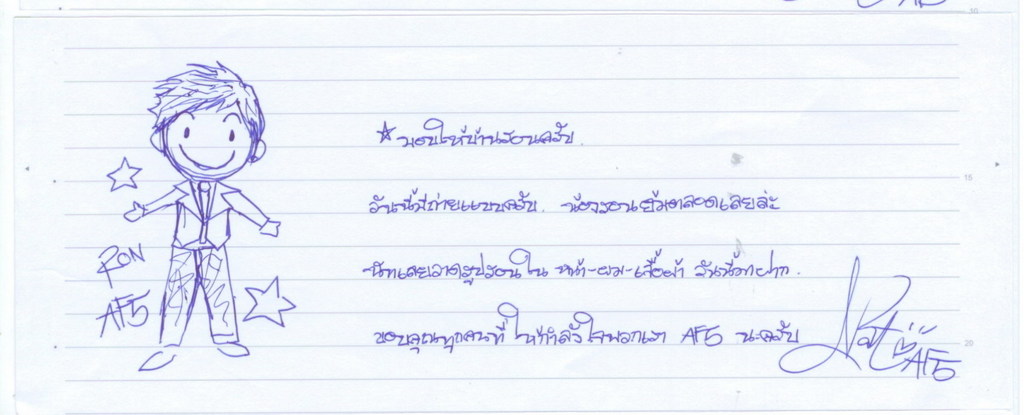 AF5
10
☆ มอบให้บ้านรอนครับ
15
วันนี้มีถ่ายแบบครับ. น้องรอนยิ้มตลอดเลยล่ะ
RON
AF5
นัทเลยวาดรูปรอนใน หน้า-ผม-เสื้อผ้า วันนี้มาฝาก.
ขอบคุณทุกคนที่ให้กำลังใจพวกเรา AF5 นะครับ
20
Nat AF5